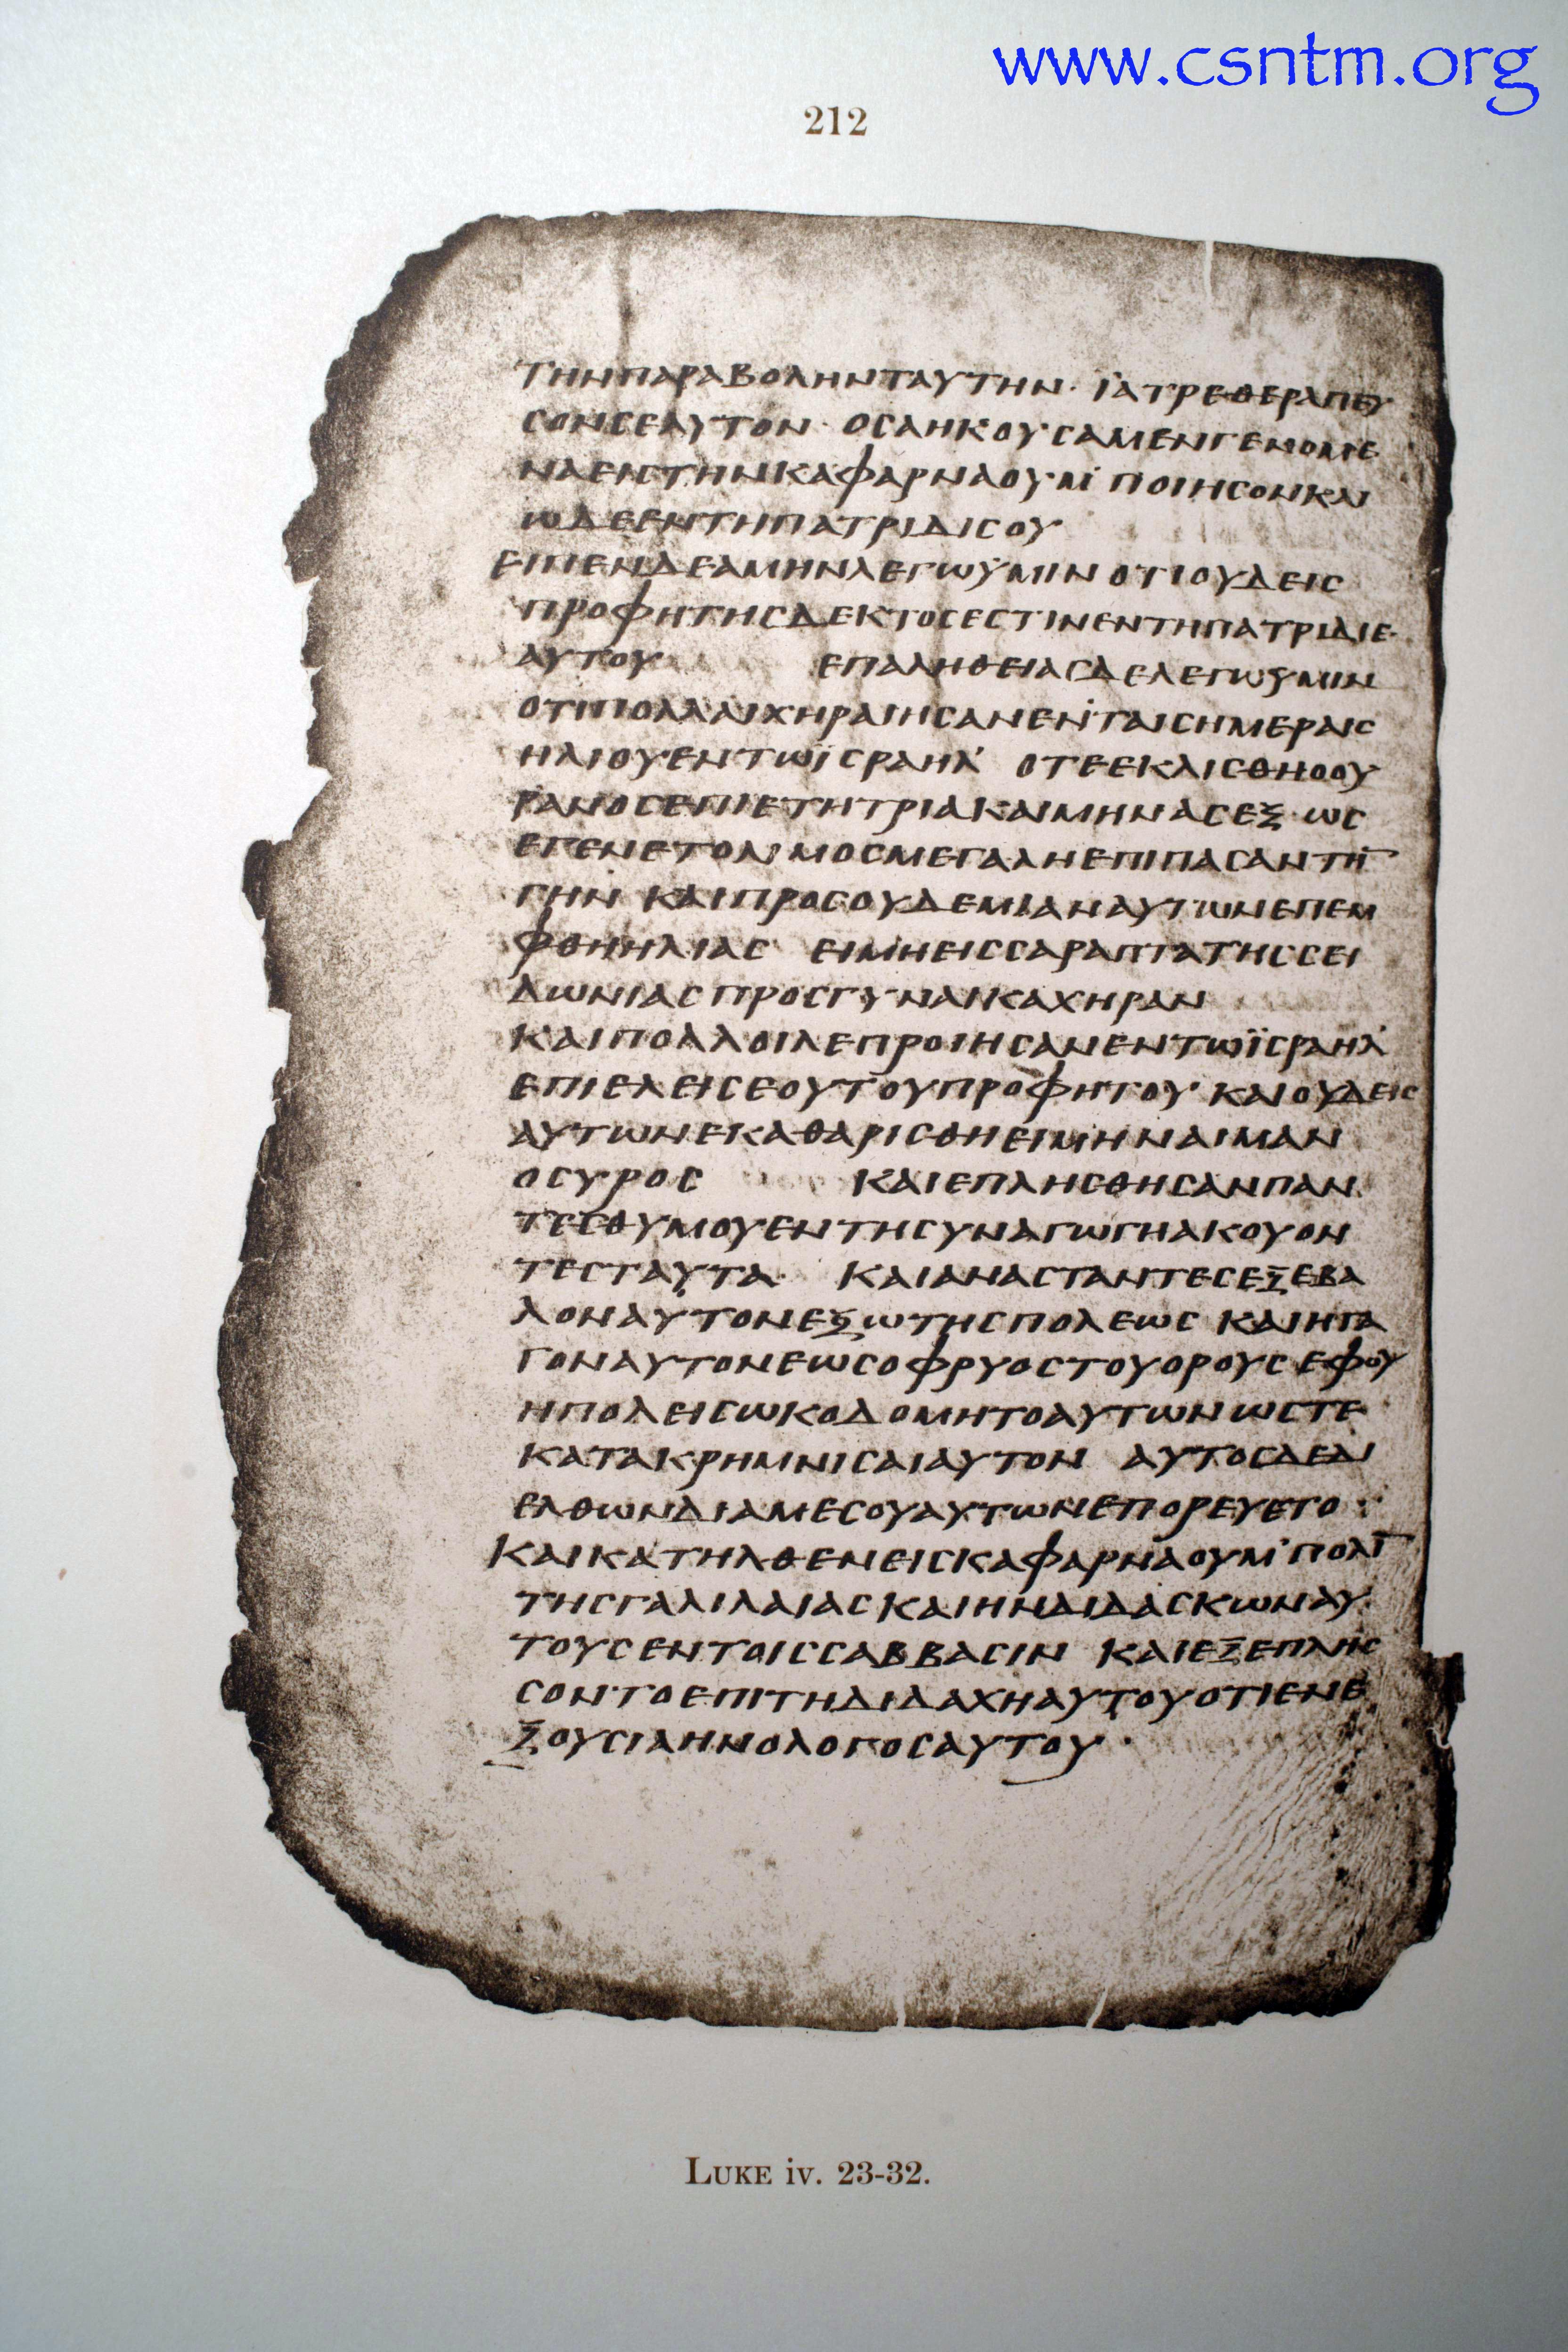 www.csntm.org
212
ΤΗΝΠΑΡΑΒΟΛΗΝΤΑΥΤΗΝ· ΪΑΤΡΕΘΕΡΑΠΕΥ
ϹΟΝϹΕΑΥΤΟΝ· ΟϹΑΗΚΟΥϹΑΜΕΝΓΕΝΟΜΕ
ΝΑΕΝΤΗΝΚΑΦΑΡΝΑΟΥΜ ̓ ΠΟΙΗϹΟΝΚΑΙ
ΩΔΕΕΝΤΗΠΑΤΡΙΔΙϹΟΥ
ΕΙΠΕΝΔΕΑΜΗΝΛΕΓΩΫΜΙΝΟΤΙΟΥΔΕΙϹ
ΠΡΟΦΗΤΗϹΔΕΚΤΟϹΕϹΤΙΝΕΝΤΗΠΑΤΡΙΔΙΕ
ΑΥΤΟΥ ΕΠΑΛΗΘΕΙΑϹΔΕΛΕΓΩΫΜΙΝ
ΟΤΙΠΟΛΛΑΙΧΗΡΑΙΗϹΑΝΕΝΤΑΙϹΗΜΕΡΑΙϹ
ΗΛΙΟΥΕΝΤΩΪϹΡΑΗΛ ̓ ΟΤΕΕΚΛΙϹΘΗΟΟΥ
ΡΑΝΟϹΕΠΙΕΤΗΤΡΙΑΚΑΙΜΗΝΑϹΕΞ· ΩϹ
ΕΓΕΝΕΤΟΛΙΜΟϹΜΕΓΑΛΗΕΠΙΠΑϹΑΝΤΗ̅
ΓΗΝ ΚΑΙΠΡΟϹΟΥΔΕΜΙΑΝΑΥΤΩΝΕΠΕΜ
ΦΘΗΗΛΙΑϹ ΕΙΜΗΕΙϹϹΑΡΑΠΤΑΤΗϹϹΕΙ
ΔΩΝΙΑϹΠΡΟϹΓΥΝΑΙΚΑΧΗΡΑΝ
ΚΑΙΠΟΛΛΟΙΛΕΠΡΟΙΗϹΑΝΕΝΤΩΪϹΡΑΗΛ ̓
ΕΠΙΕΛΕΙϹΕΟΥΤΟΥΠΡΟΦΗΤΟΥ ΚΑΙΟΥΔΕΙϹ
ΑΥΤΩΝΕΚΑΘΑΡΙϹΘΗΕΙΜΗΝΑΙΜΑΝ
ΟϹΥΡΟϹ ΚΑΙΕΠΛΗϹΘΗϹΑΝΠΑΝ
ΤΕϹΘΥΜΟΥΕΝΤΗϹΥΝΑΓΩΓΗΑΚΟΥΟΝ
ΤΕϹΤΑΥΤΑ· ΚΑΙΑΝΑϹΤΑΝΤΕϹΕΞΕΒΑ
ΛΟΝΑΥΤΟΝΕΞΩΤΗϹΠΟΛΕΩϹ ΚΑΙΗΓΑ
ΓΟΝΑΥΤΟΝΕΩϹΟΦΡΥΟϹΤΟΥΟΡΟΥϹΕΦΟΥ
ΗΠΟΛΕΙϹΩΚΟΔΟΜΗΤΟΑΥΤΩΝΩϹΤΕ
ΚΑΤΑΚΡΗΜΝΙϹΑΙΑΥΤΟΝ ΑΥΤΟϹΔΕΔΙ
ΕΛΘΩΝΔΙΑΜΕϹΟΥΑΥΤΩΝΕΠΟΡΕΥΕΤΟ·
ΚΑΙΚΑΤΗΛΘΕΝΕΙϹΚΑΦΑΡΝΑΟΥΜ ̓ΠΟΛΙ̅
ΤΗϹΓΑΛΙΛΑΙΑϹΚΑΙΗΝΔΙΔΑϹΚΩΝΑΥ
ΤΟΥϹΕΝΤΟΙϹϹΑΒΒΑϹΙΝ ΚΑΙΕΞΕΠΛΗϹ
ϹΟΝΤΟΕΠΙΤΗΔΙΔΑΧΗΑΥΤΟΥΟΤΙΕΝΕ
ΞΟΥϹΙΑΗΝΟΛΟΓΟϹΑΥΤΟΥ·
LUKE iv. 23-32.